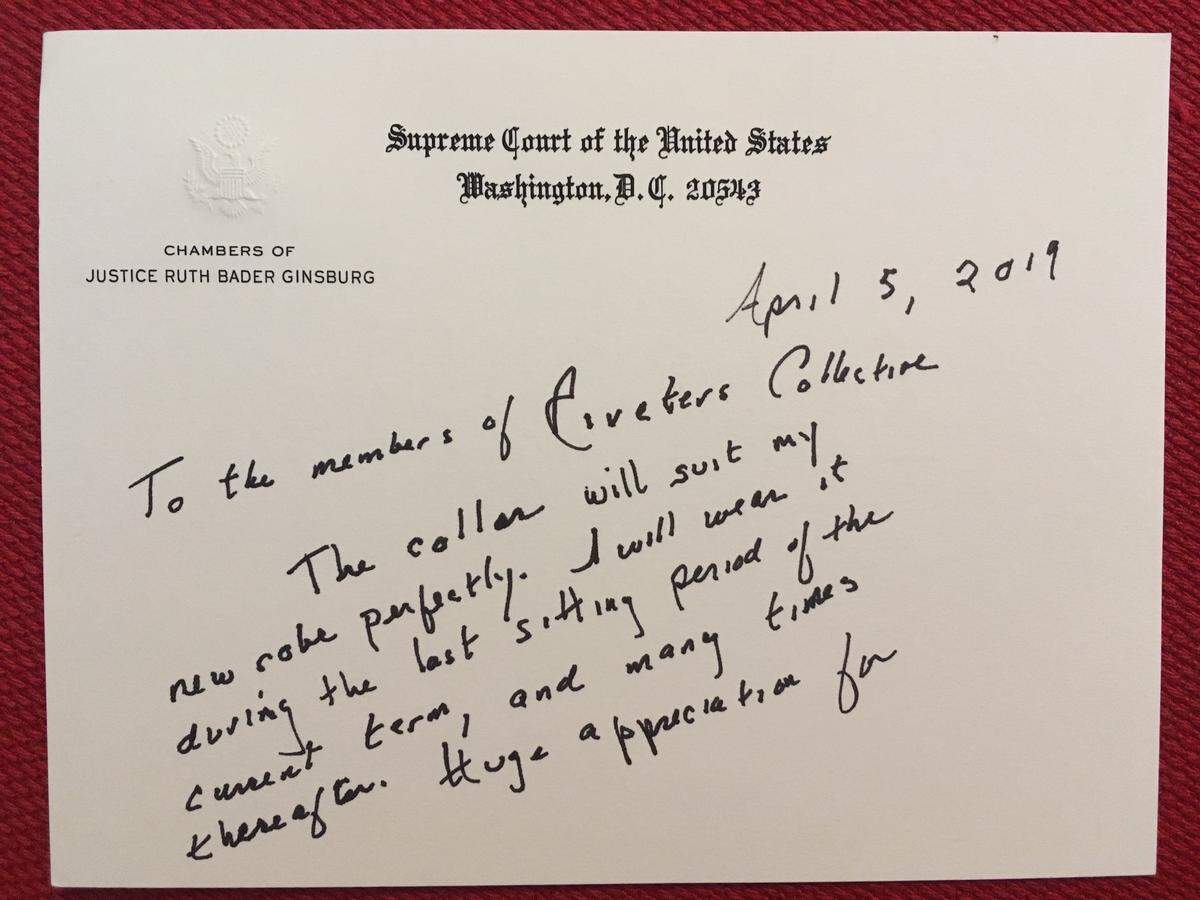 Supreme Court of the United States
Washington, D.C. 20543
CHAMBERS OF
JUSTICE RUTH BADER GINSBURG
April 5, 2019
To the members of Riveters Collective
The collar will suit my
new robe perfectly. I will wear it
during the last sitting period of the
current term, and many times
thereafter. Huge appreciation for